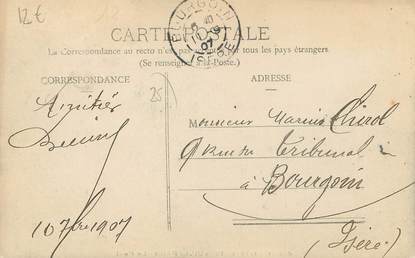 12€
CARTE POSTALE
BOURGOIN
07
ISERE
La Correspondance au recto n'est pas tous les pays étrangers
(Se renseigner à la Poste.)
CORRESPONDANCE
ADRESSE
25
Amitiés
10 7bre 1907
Monsieur Marius
9 Rue du Tribunal
à Bourgoin
(Isère)